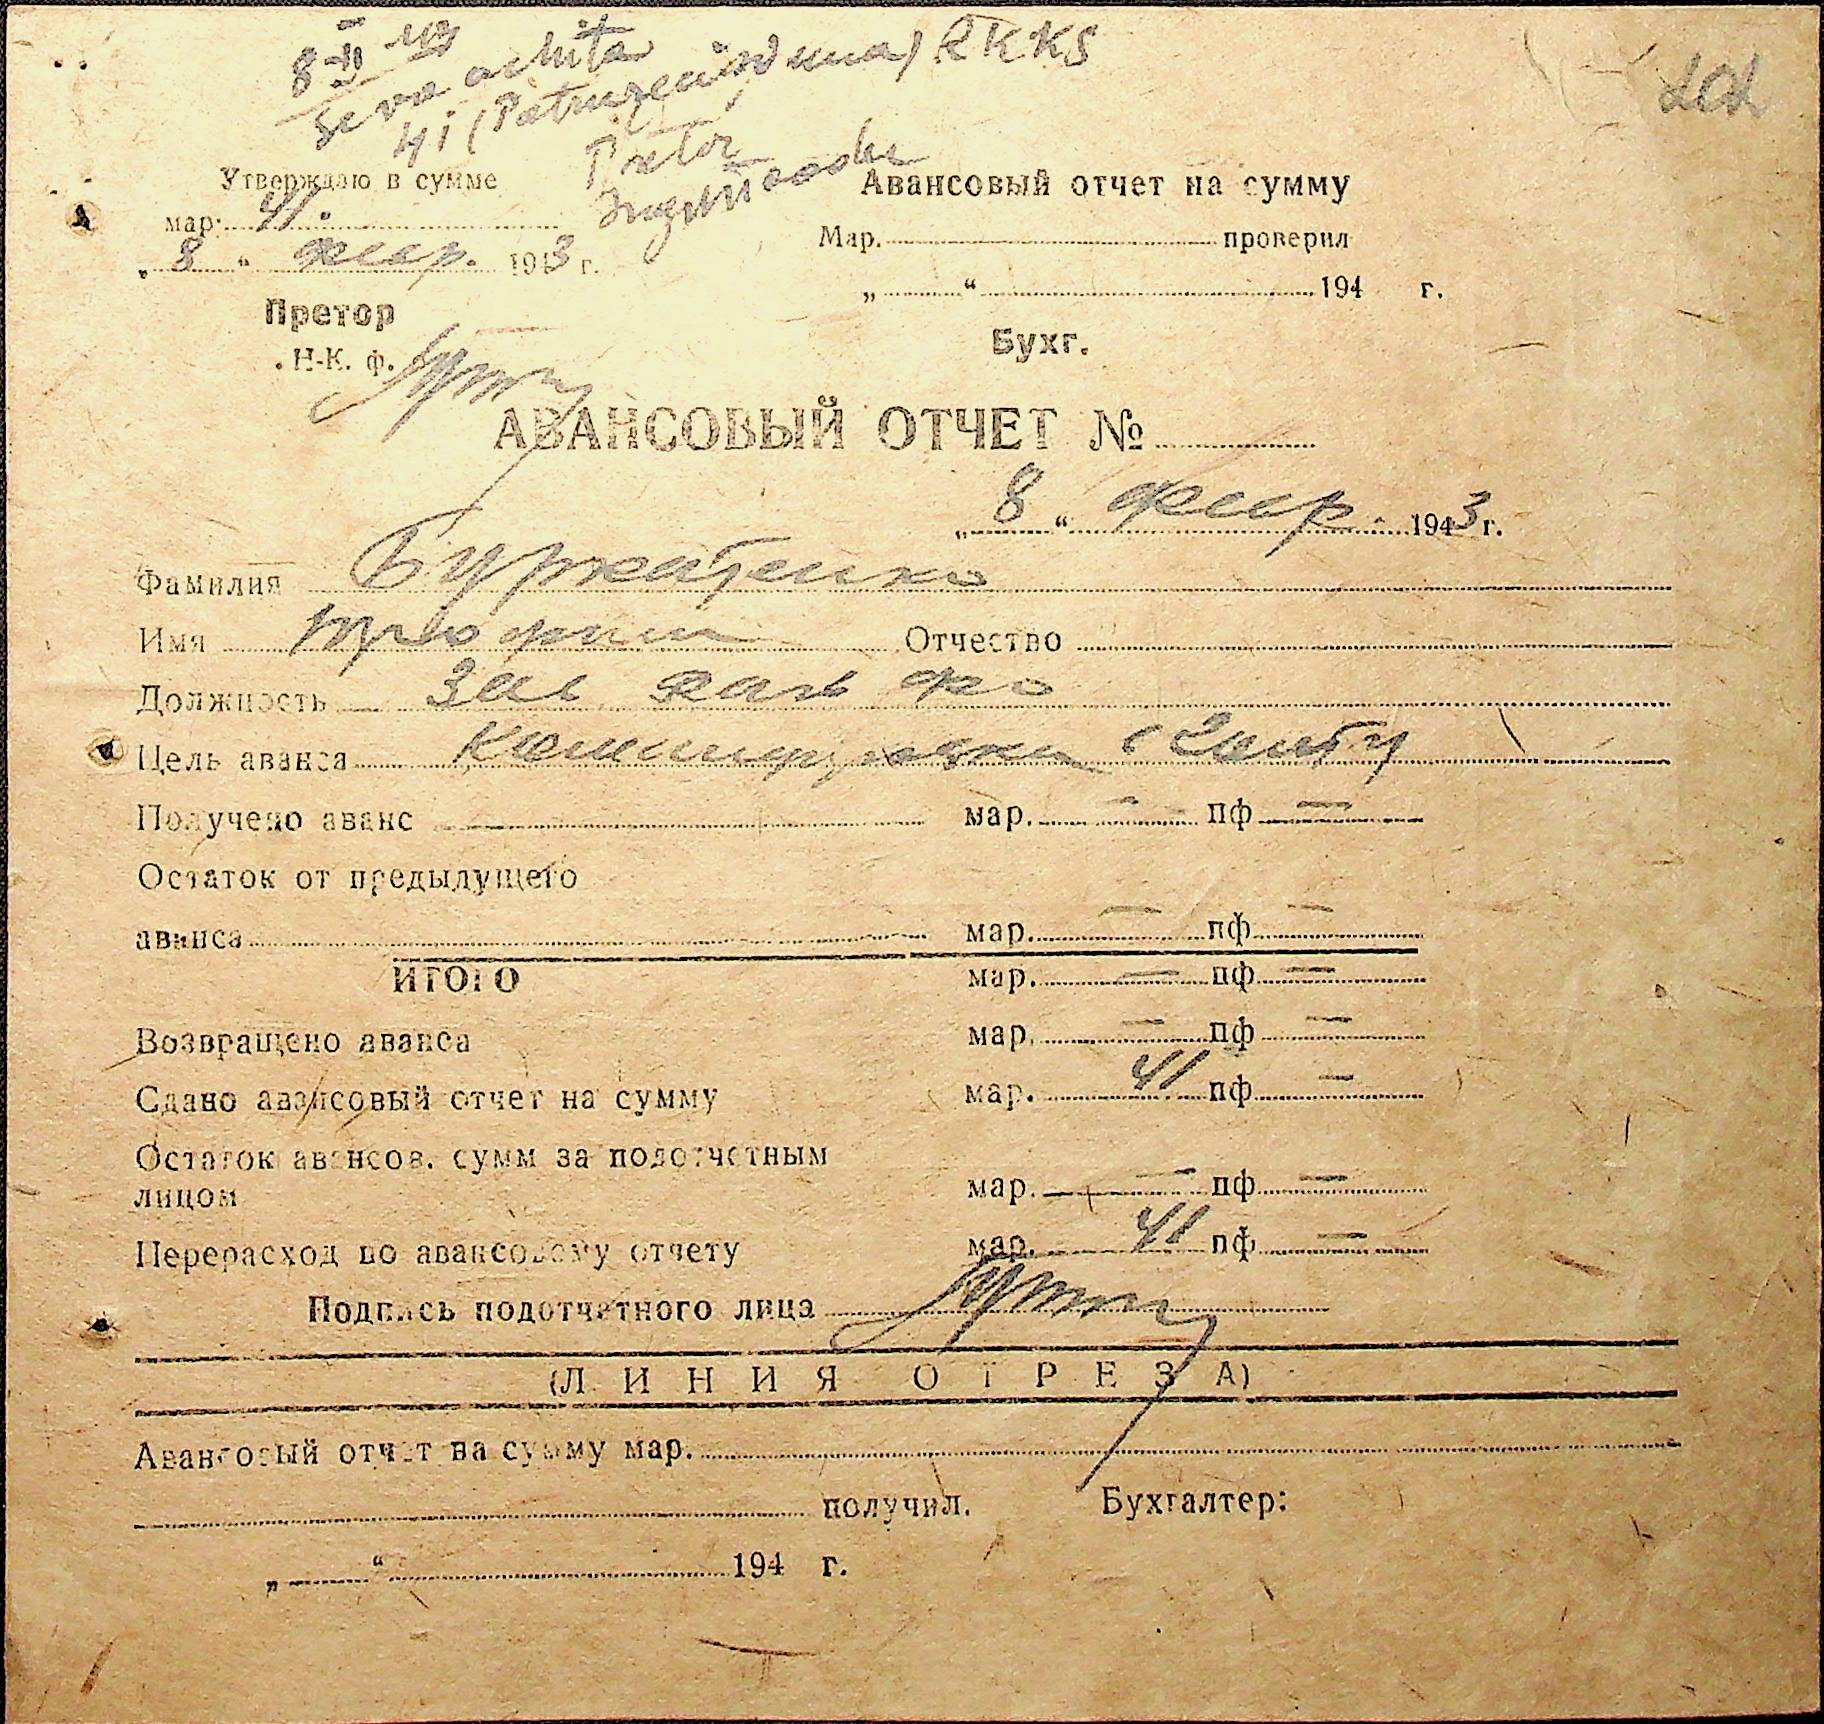 8 II 43
Se va achita
41 (Patruzeci și una) RKKS
Pretor
Утверждаю в сумме
мар. 41.
„8“ февр. 1943 г.
Претор
Н-К. ф.
Авансовый отчет на сумму
Мар. проверил
„ “ 194 г.
Бухг.
АВАНСОВЫЙ ОТЧЕТ №
„8“ февр. 1943 г.
Фамилия
Имя Трофим Отчество
Должность Зав
Цель аванса Командировки
Получено аванс мар. — пф —
Остаток от предыдущего
аванса мар. — пф —
ИТОГО мар. — пф —
Возвращено аванса мар. — пф —
Сдано авансовый отчет на сумму мар. 41 пф —
Остаток авансов. сумм за подотчетным
лицом мар. — пф —
Перерасход по авансовому отчету мар. 41 пф —
Подпись подотчетного лица
(ЛИНИЯ ОТРЕЗА)
Авансовый отчет на сумму мар.
получил. Бухгалтер:
„ “ 194 г.